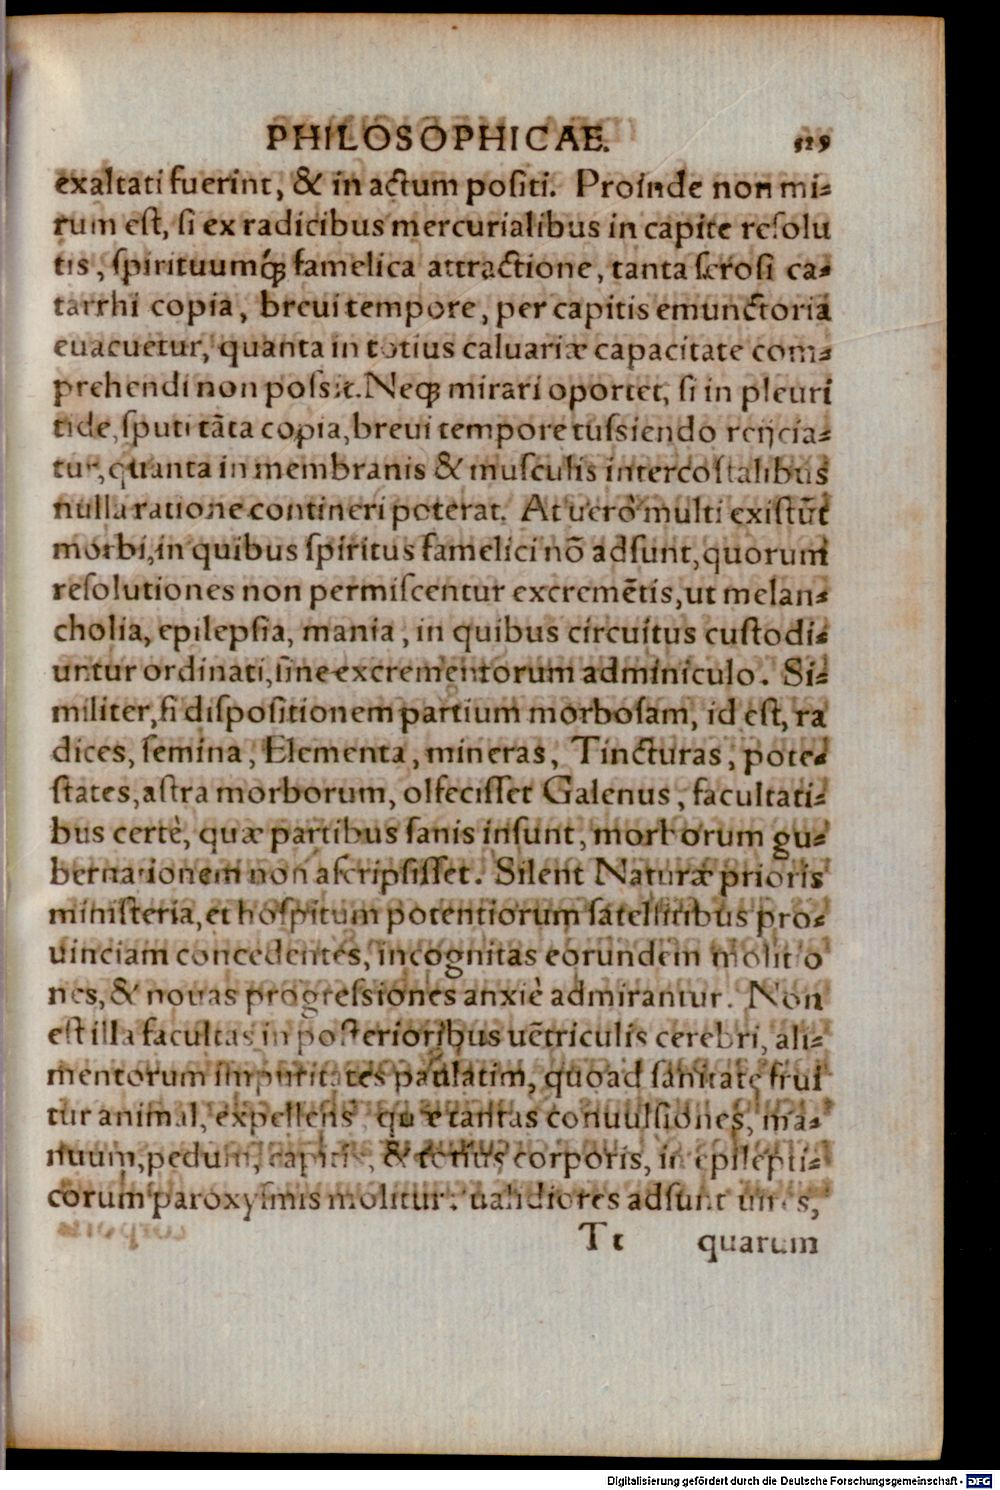 PHILOSOPHICAE. 529
exaltati fuerint, & in actum positi. Proinde non mi-
rum est, si ex radicibus mercurialibus in capite resolu
tis, spirituumq́ꝫ famelica attractione, tanta serosi ca-
tarrhi copia, breui tempore, per capitis emunctoria
euacuetur, quanta in totius caluariæ capacitate com-
prehendi non possit. Neqꝫ mirari oportet, si in pleuri
tide, sputi tāta copia, breui tempore tussiendo reijcia-
tur, quanta in membranis & musculis intercostalibus
nulla ratione contineri poterat. At uerò multi existūt
morbi, in quibus spiritus famelici nō adsunt, quorum
resolutiones non permiscentur excremētis, ut melan-
cholia, epilepsia, mania, in quibus circuitus custodi-
untur ordinati, sine excrementorum adminiculo. Si-
militer, si dispositionem partium morbosam, id est, ra
dices, semina, Elementa, mineras, Tincturas, pote-
states, astra morborum, olfecisset Galenus, facultati-
bus certè, quæ partibus sanis insunt, morborum gu-
bernationem non ascripsisset. Silent Naturæ prioris
ministeria, et hospitum potentiorum satellitibus pro-
uinciam concedentes, incognitas eorundem molitio
nes, & nouas progressiones anxiè admirantur. Non
est illa facultas in posterioribus uētriculis cerebri, ali-
mentorum impuritates paulatim, quoad sanitate frui
tur animal, expellens quæ tantas conuulsiones, ma-
nuum, pedum, capitis, & totius corporis, in epilepti-
corum paroxysmis molitur: ualidiores adsunt uires,
Tt quarum
Digitalisierung gefördert durch die Deutsche Forschungsgemeinschaft - DFG